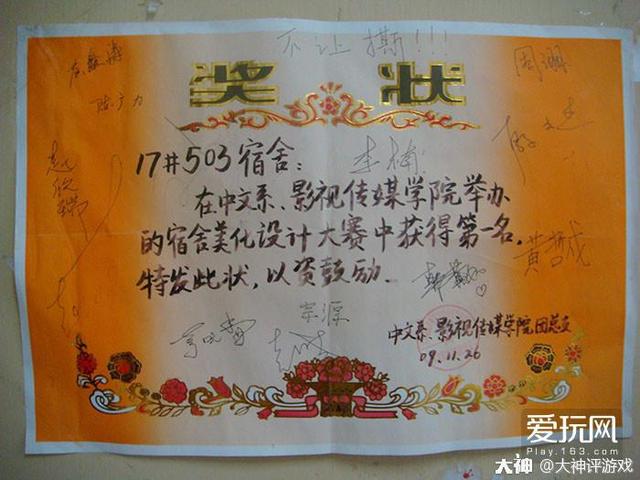 不让撕!!!
周渊
奖状
陈广力
17#503宿舍:
李楠
在中文系、影视传媒学院举办
的宿舍美化设计大赛中获得第一名,
特发此状,以资鼓励.
黄哲成
宗源
中文系、影视传媒学院团总支
09.11.26
爱玩网
Play.163.com
大神 @大神评游戏